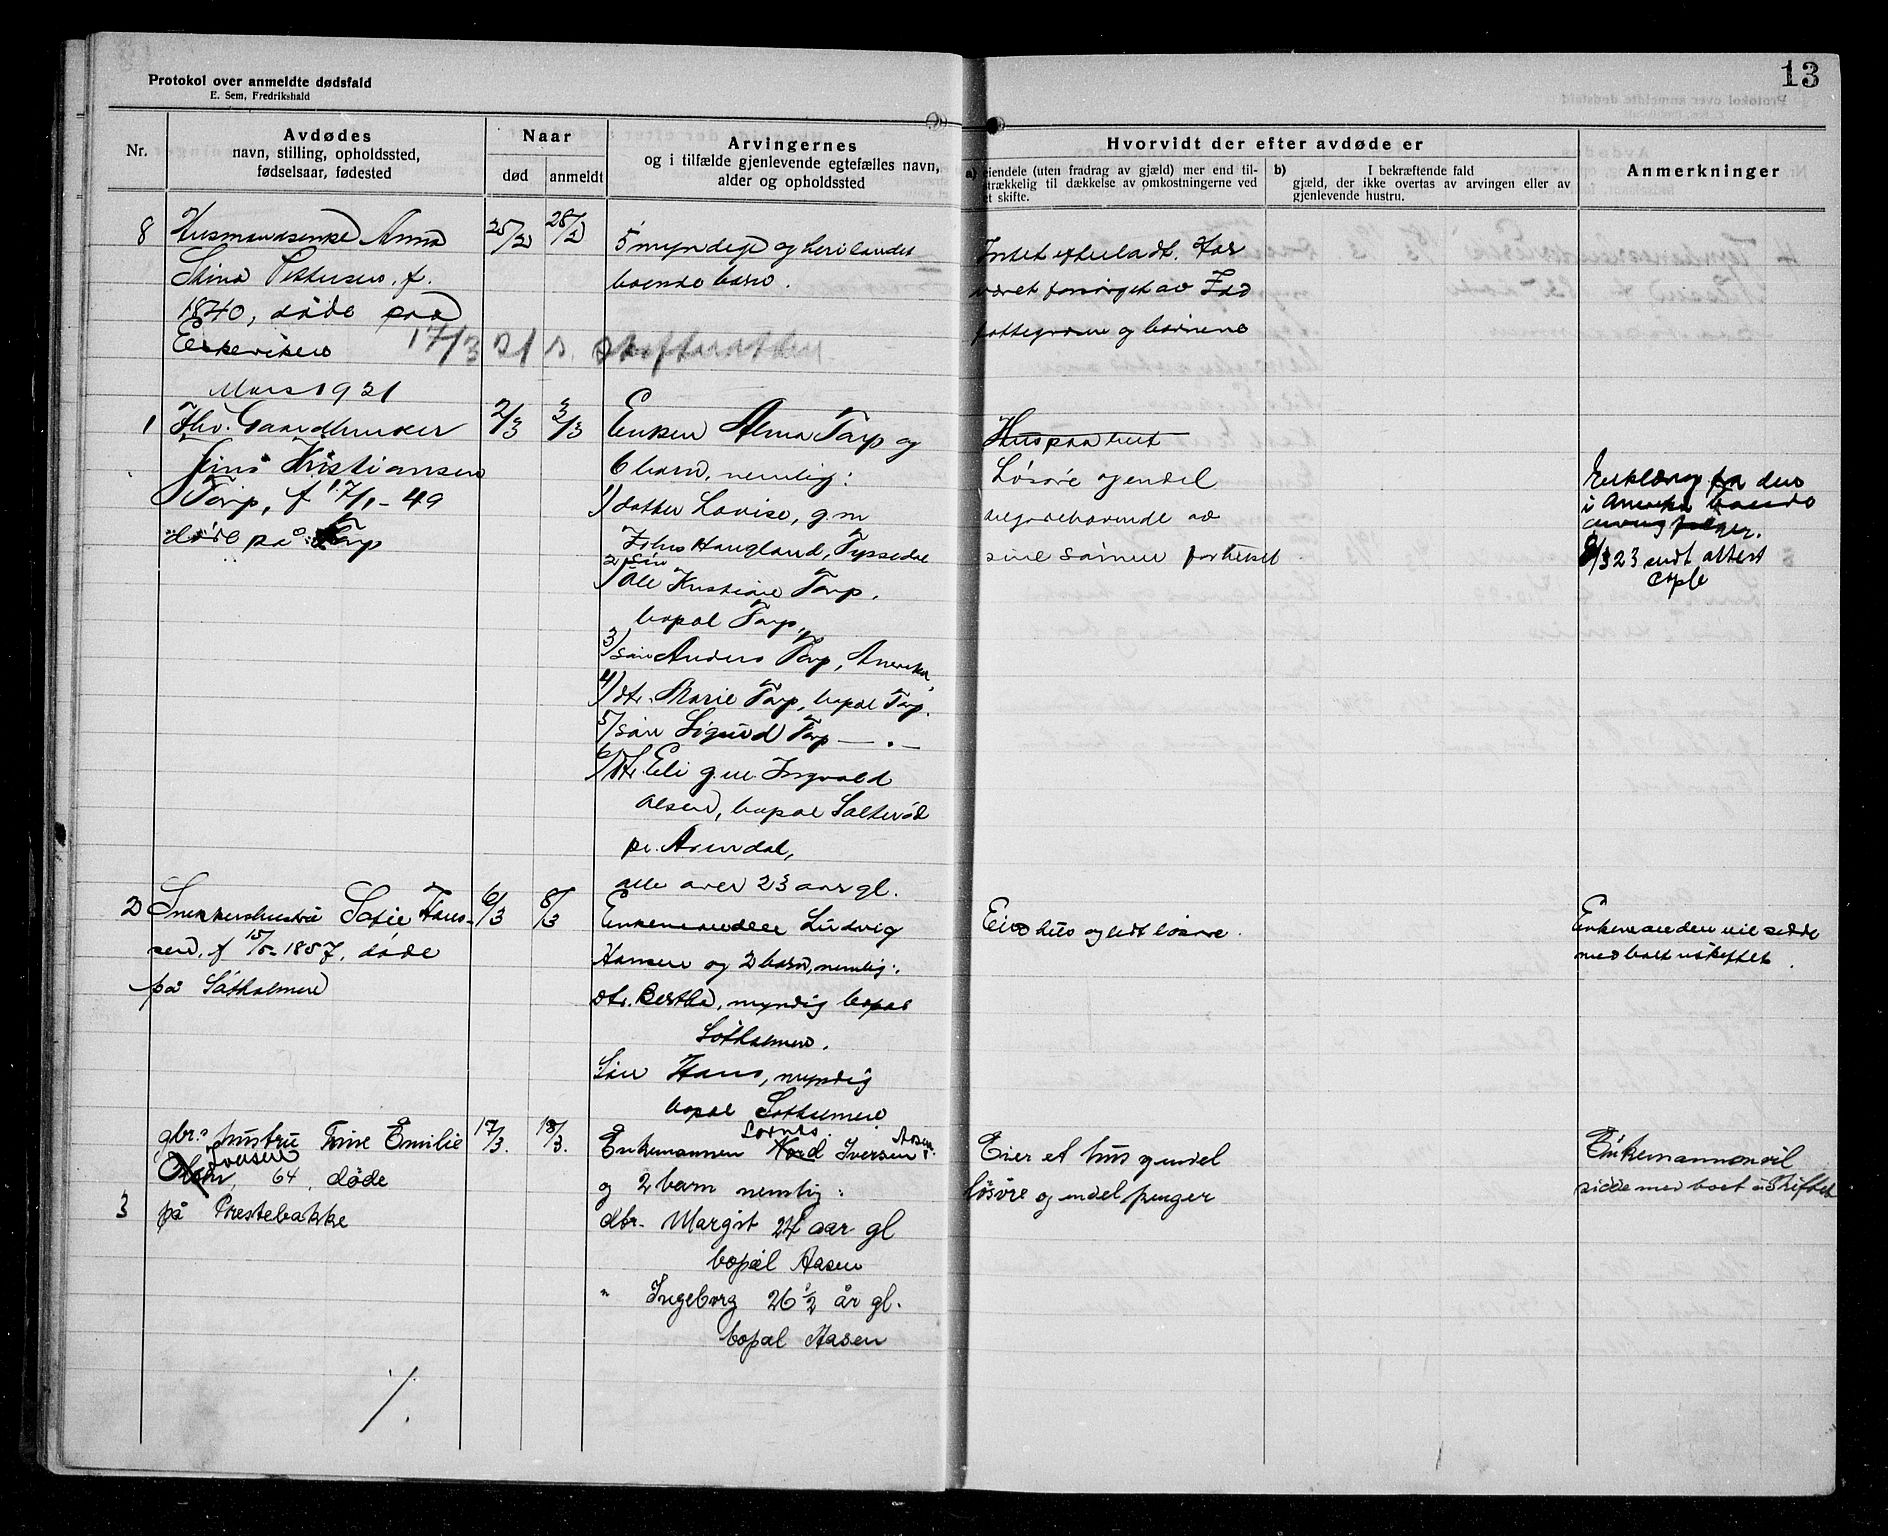 13
Protokol over anmeldte dødsfald
E. Sem, Fredrikshald
Nr.
Avdødes
navn, stilling, opholdssted,
fødselsaar, fødested
Naar
død
anmeldt
Arvingernes
og i tilfælde gjenlevende egtefælles navn,
alder og opholdssted
Hvorvidt der efter avdøde er
a) eiendele (uten fradrag av gjæld) mer end til-
strækkelig til dækkelse av omkostningerne ved
et skifte.
b) I bekræftende fald
gjæld, der ikke overtas av arvingen eller av
gjenlevende hustru.
Anmerkninger
8
Husmandsenke Anna
Stina Pettersen, f.
1840, døde paa
25/2
28/2
5 myndige og her i landet
boende barn.
Intet efterladt. Har
været forsørget av Fad
fattigvæsen og barnene
17/3 21 s.
Mars 1921
1
Fhv. Gaardbruker
Jens Kristiansen
Torp, f 17/1-49
døde på Torp
2/3
3/3
Enken Alma Torp og
6 barn, nemlig:
1) datter Lovise, g.m
Johs Haugland, Tyssedal
2) søn Ole Kristian Torp,
bopæl Torp,
3) søn Anders Torp, Amerika,
4) dtr. Marie Torp, bopæl Torp.
5) søn Sigurd Torp — " —
6) dtr. Eli g.m. Ingvald
Olsen, bopæl Salterød
pr. Arendal,
alle over 23 aar gl.
Hus paa
Løsøre og endel
av
sine sønner
Erklæring fra den
i Amerika boende
arving følger.
8/3 23 sendt attest
2
Snekkerhustru Sofie Han-
sen, f 15/5-1857, døde
på Sætholmen
6/3
8/3
Enkemanden Ludvig
Hansen og 2 barn, nemlig:
dtr. Bertha, myndig bopæl
Søtholmen.
Søn Hans, myndig
bopæl Søtholmen
Eier hus og lidt løsøre.
Enkemanden vil sidde
med boet uskiftet.
3
gbr.s hustru Trine Emilie
Iversen
64, døde
på Prestebakke
17/3.
18/3.
Enkemannen Nord Iversen Aasen
og 2 barn nemlig:
dtr. Margit 24 aar gl
bopæl Aasen
" Ingeborg 26 1/2 år gl.
bopæl Aasen
Eier et hus og endel
løsøre og endel penger
Enkemannen vil
sidde med boet uskiftet